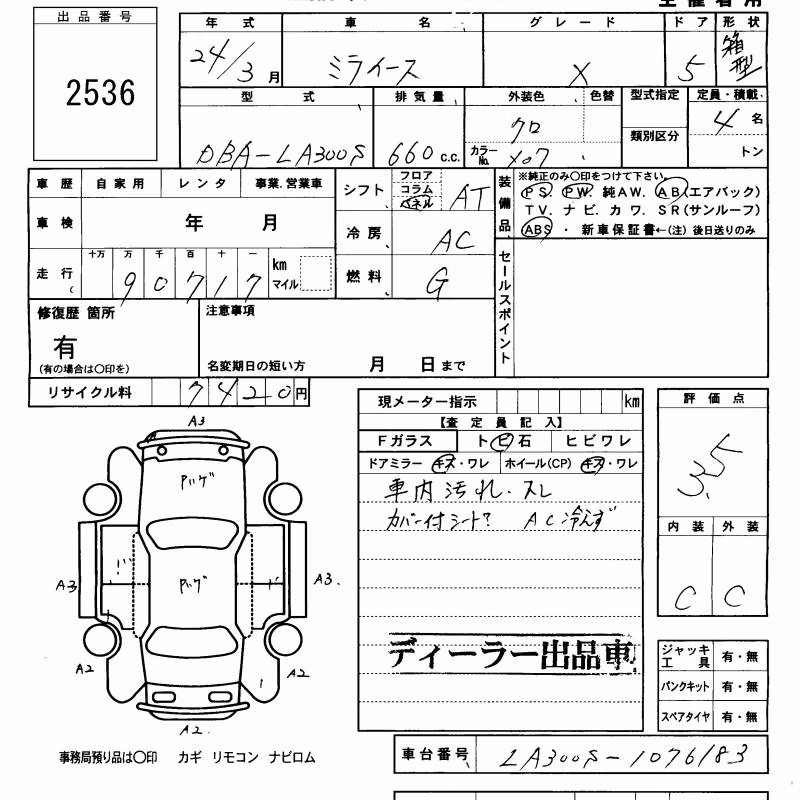 出品番号
2536
年式 車名 グレード ドア 形状
24/3月 ミライース X 5 箱型
型式 排気量 外装色 色替 型式指定 定員・積載
クロ 4名
類別区分
DBA-LA300S 660 c.c. カラーNo. X07 トン
車歴 自家用 レンタ 事業.営業車
シフト フロア コラム パネル AT
装備品
※純正のみ○印をつけて下さい。
PS. PW. 純AW. AB(エアバック)
TV. ナビ. カワ. SR(サンルーフ)
ABS ・ 新車保証書←(注) 後日送りのみ
車検 年 月
冷房 AC
走行 十万 万 千 百 十 一 km マイル
90717
燃料 G
セールスポイント
修復歴 箇所 注意事項
有
(有の場合は○印を) 名変期日の短い方 月 日まで
リサイクル料 7420円
現メーター指示 km
【査定員記入】
Fガラス トビ石 ヒビワレ
ドアミラー キズ・ワレ ホイール(CP) キズ・ワレ
車内汚れ.スレ
カバー付シート? AC冷えず
ディーラー出品車
評価点
3.5
内装 外装
C C
A3
A3
A3.
A2
A2
A2.
ジャッキ工具 有・無
パンクキット 有・無
スペアタイヤ 有・無
事務局預り品は○印 カギ リモコン ナビロム
車台番号 LA300S-1076183